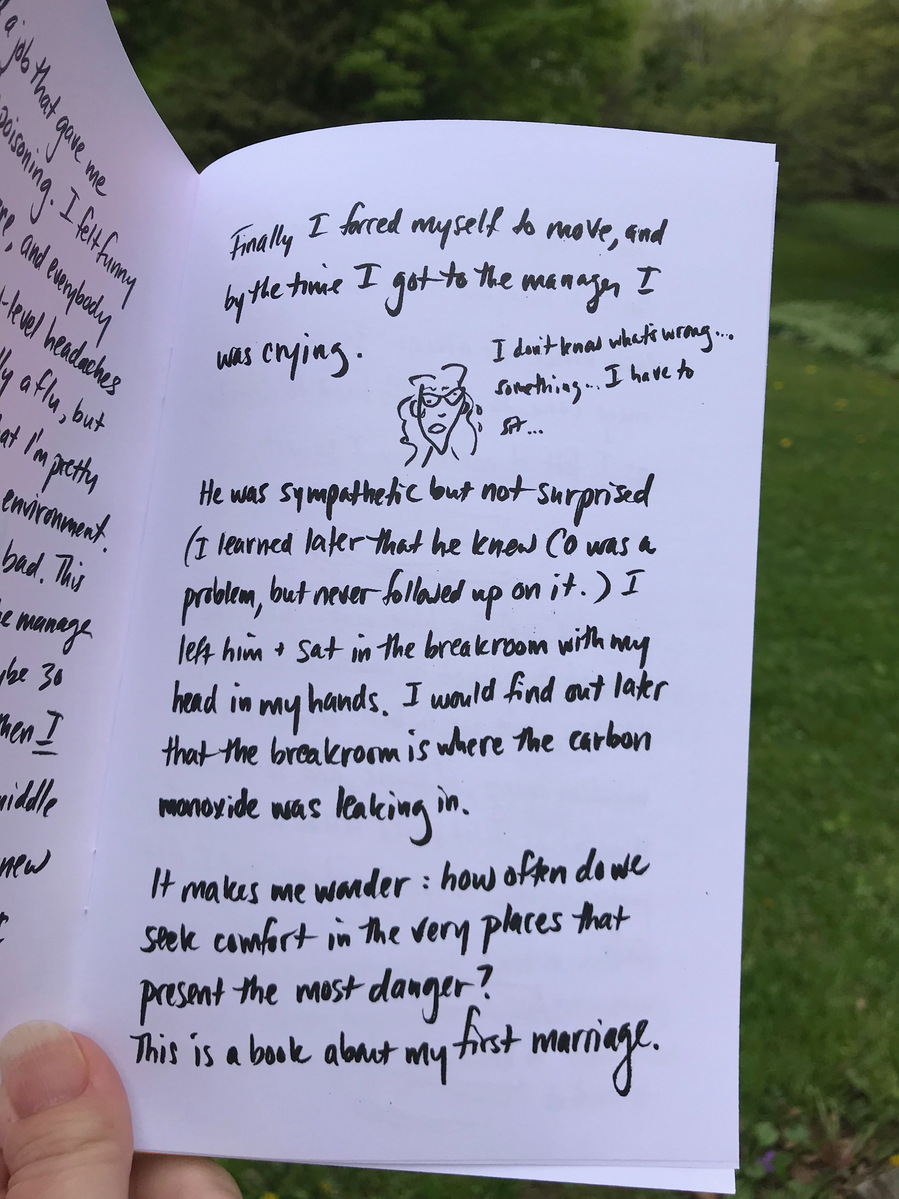 a job that gave me
poisoning. I felt funny
, and everybody
-level headaches
a flu, but
at I'm pretty
environment.
bad. This
manage
30
I
middle
new
Finally I forced myself to move, and
by the time I got to the manager I
was crying.
I don't know what's wrong...
something... I have to
sit...
He was sympathetic but not surprised
(I learned later that he knew CO was a
problem, but never followed up on it.) I
left him + sat in the breakroom with my
head in my hands. I would find out later
that the breakroom is where the carbon
monoxide was leaking in.
It makes me wonder : how often do we
seek comfort in the very places that
present the most danger?
This is a book about my first marriage.